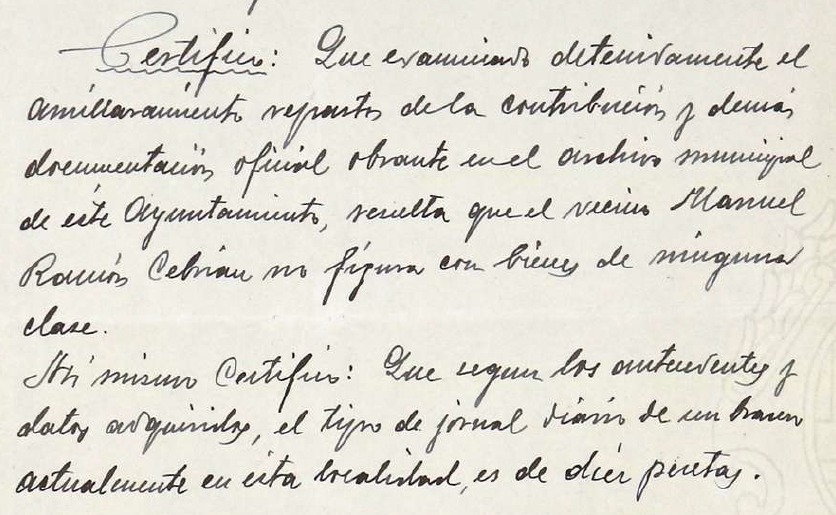 Certifico: Que examinado detenidamente el
amillaramiento repartos de la contribución y demás
documentación oficial obrante en el archivo municipal
de éste Ayuntamiento, resulta que el vecino Manuel
Ramón Cebrian no figura con bienes de ninguna
clase.
Asi mismo Certifico: Que segun los antecedentes y
datos adquiridos, el tipo de jornal diario de un bracero
actualmente en esta localidad, es de diez pesetas.